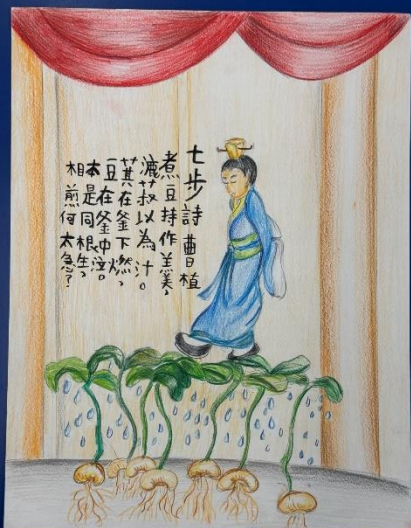 七步詩 曹植
煮豆持作羹，
漉菽以為汁。
萁在釜下燃，
豆在釜中泣。
本是同根生，
相煎何太急？